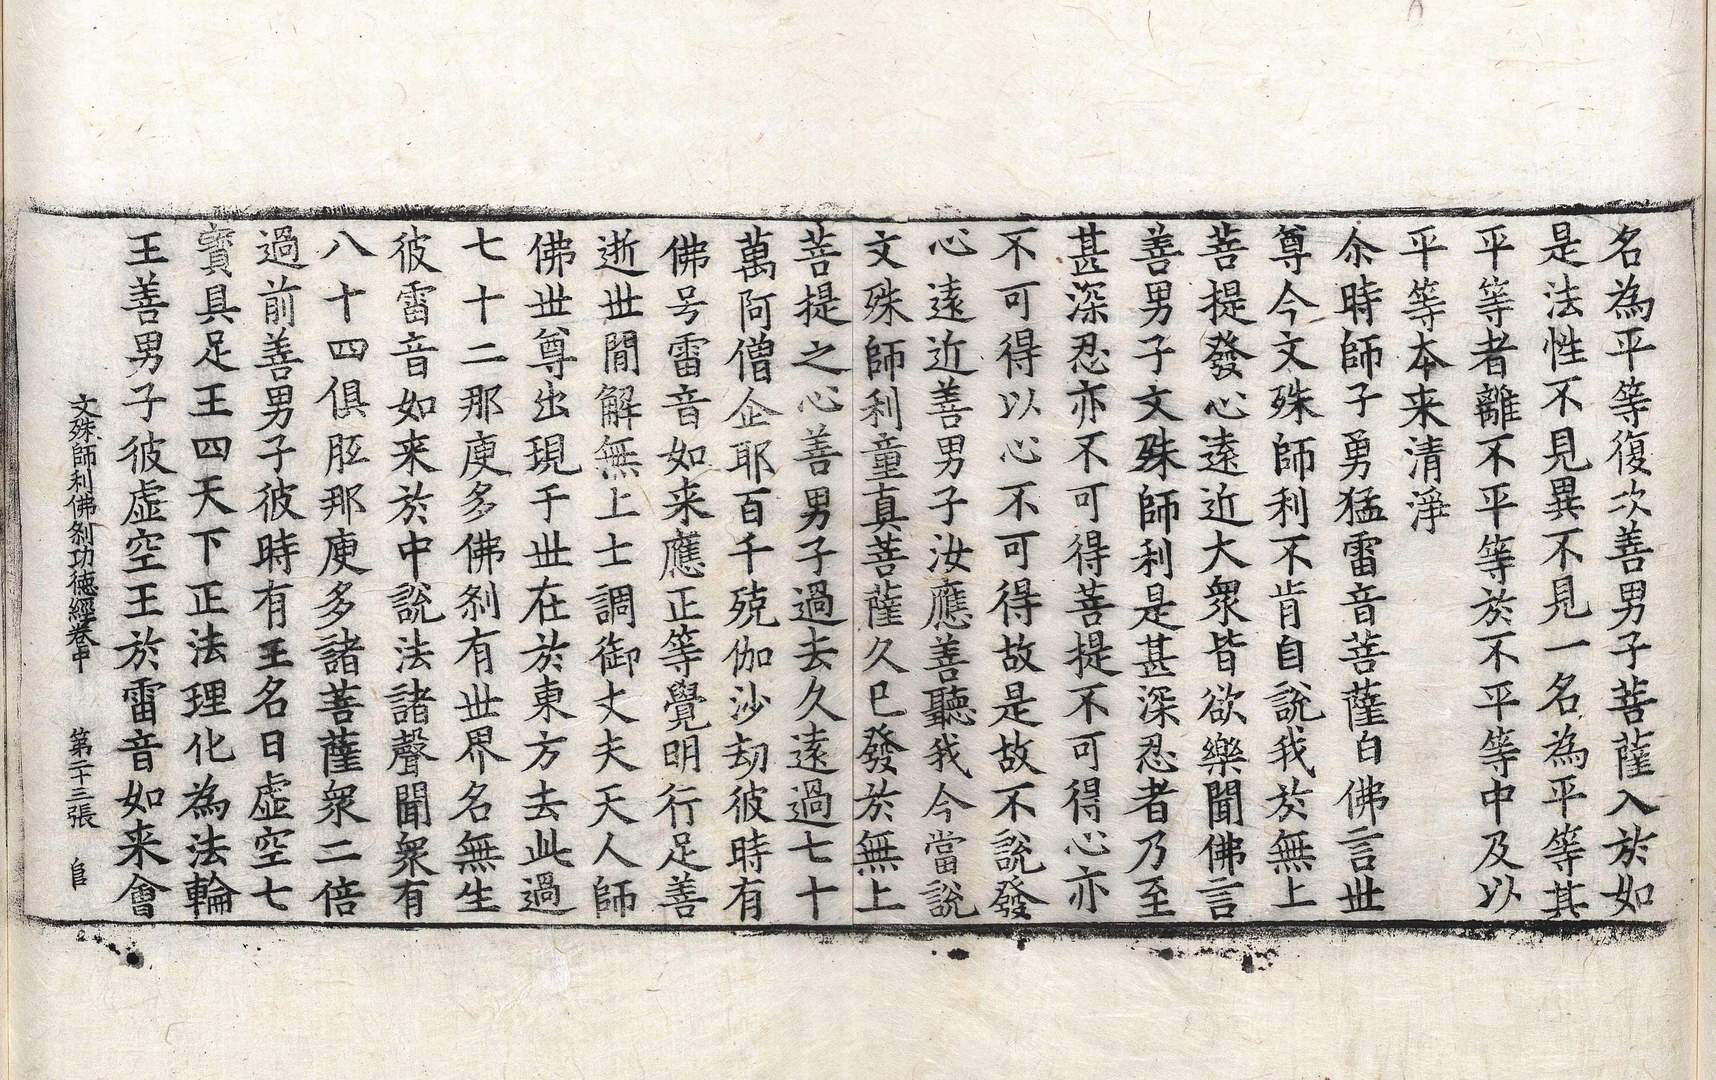 名為平等復次善男子菩薩入於如
是法性不見異不見一名為平等其
平等者離不平等於不平等中及以
平等本来清淨
尒時師子勇猛雷音菩薩白佛言世
尊今文殊師利不肯自說我於無上
菩提發心遠近大衆皆欲樂聞佛言
善男子文殊師利是甚深忍者乃至
甚深忍亦不可得菩提不可得心亦
不可得以心不可得故是故不說發
心遠近善男子汝應善聽我今當說
文殊師利童真菩薩久已發於無上
菩提之心善男子過去久遠過七十
萬阿僧企耶百千殑伽沙劫彼時有
佛号雷音如来應正等覺明行足善
逝世間解無上士調御丈夫天人師
佛世尊出現于世在於東方去此過
七十二那庾多佛刹有世界名無生
彼雷音如来於中說法諸聲聞衆有
八十四俱胝那庾多諸菩薩衆二倍
過前善男子彼時有王名曰虛空七
寶具足王四天下正法理化為法輪
王善男子彼虛空王於雷音如来會
文殊師利佛刹功德經卷中 第二十三張 官